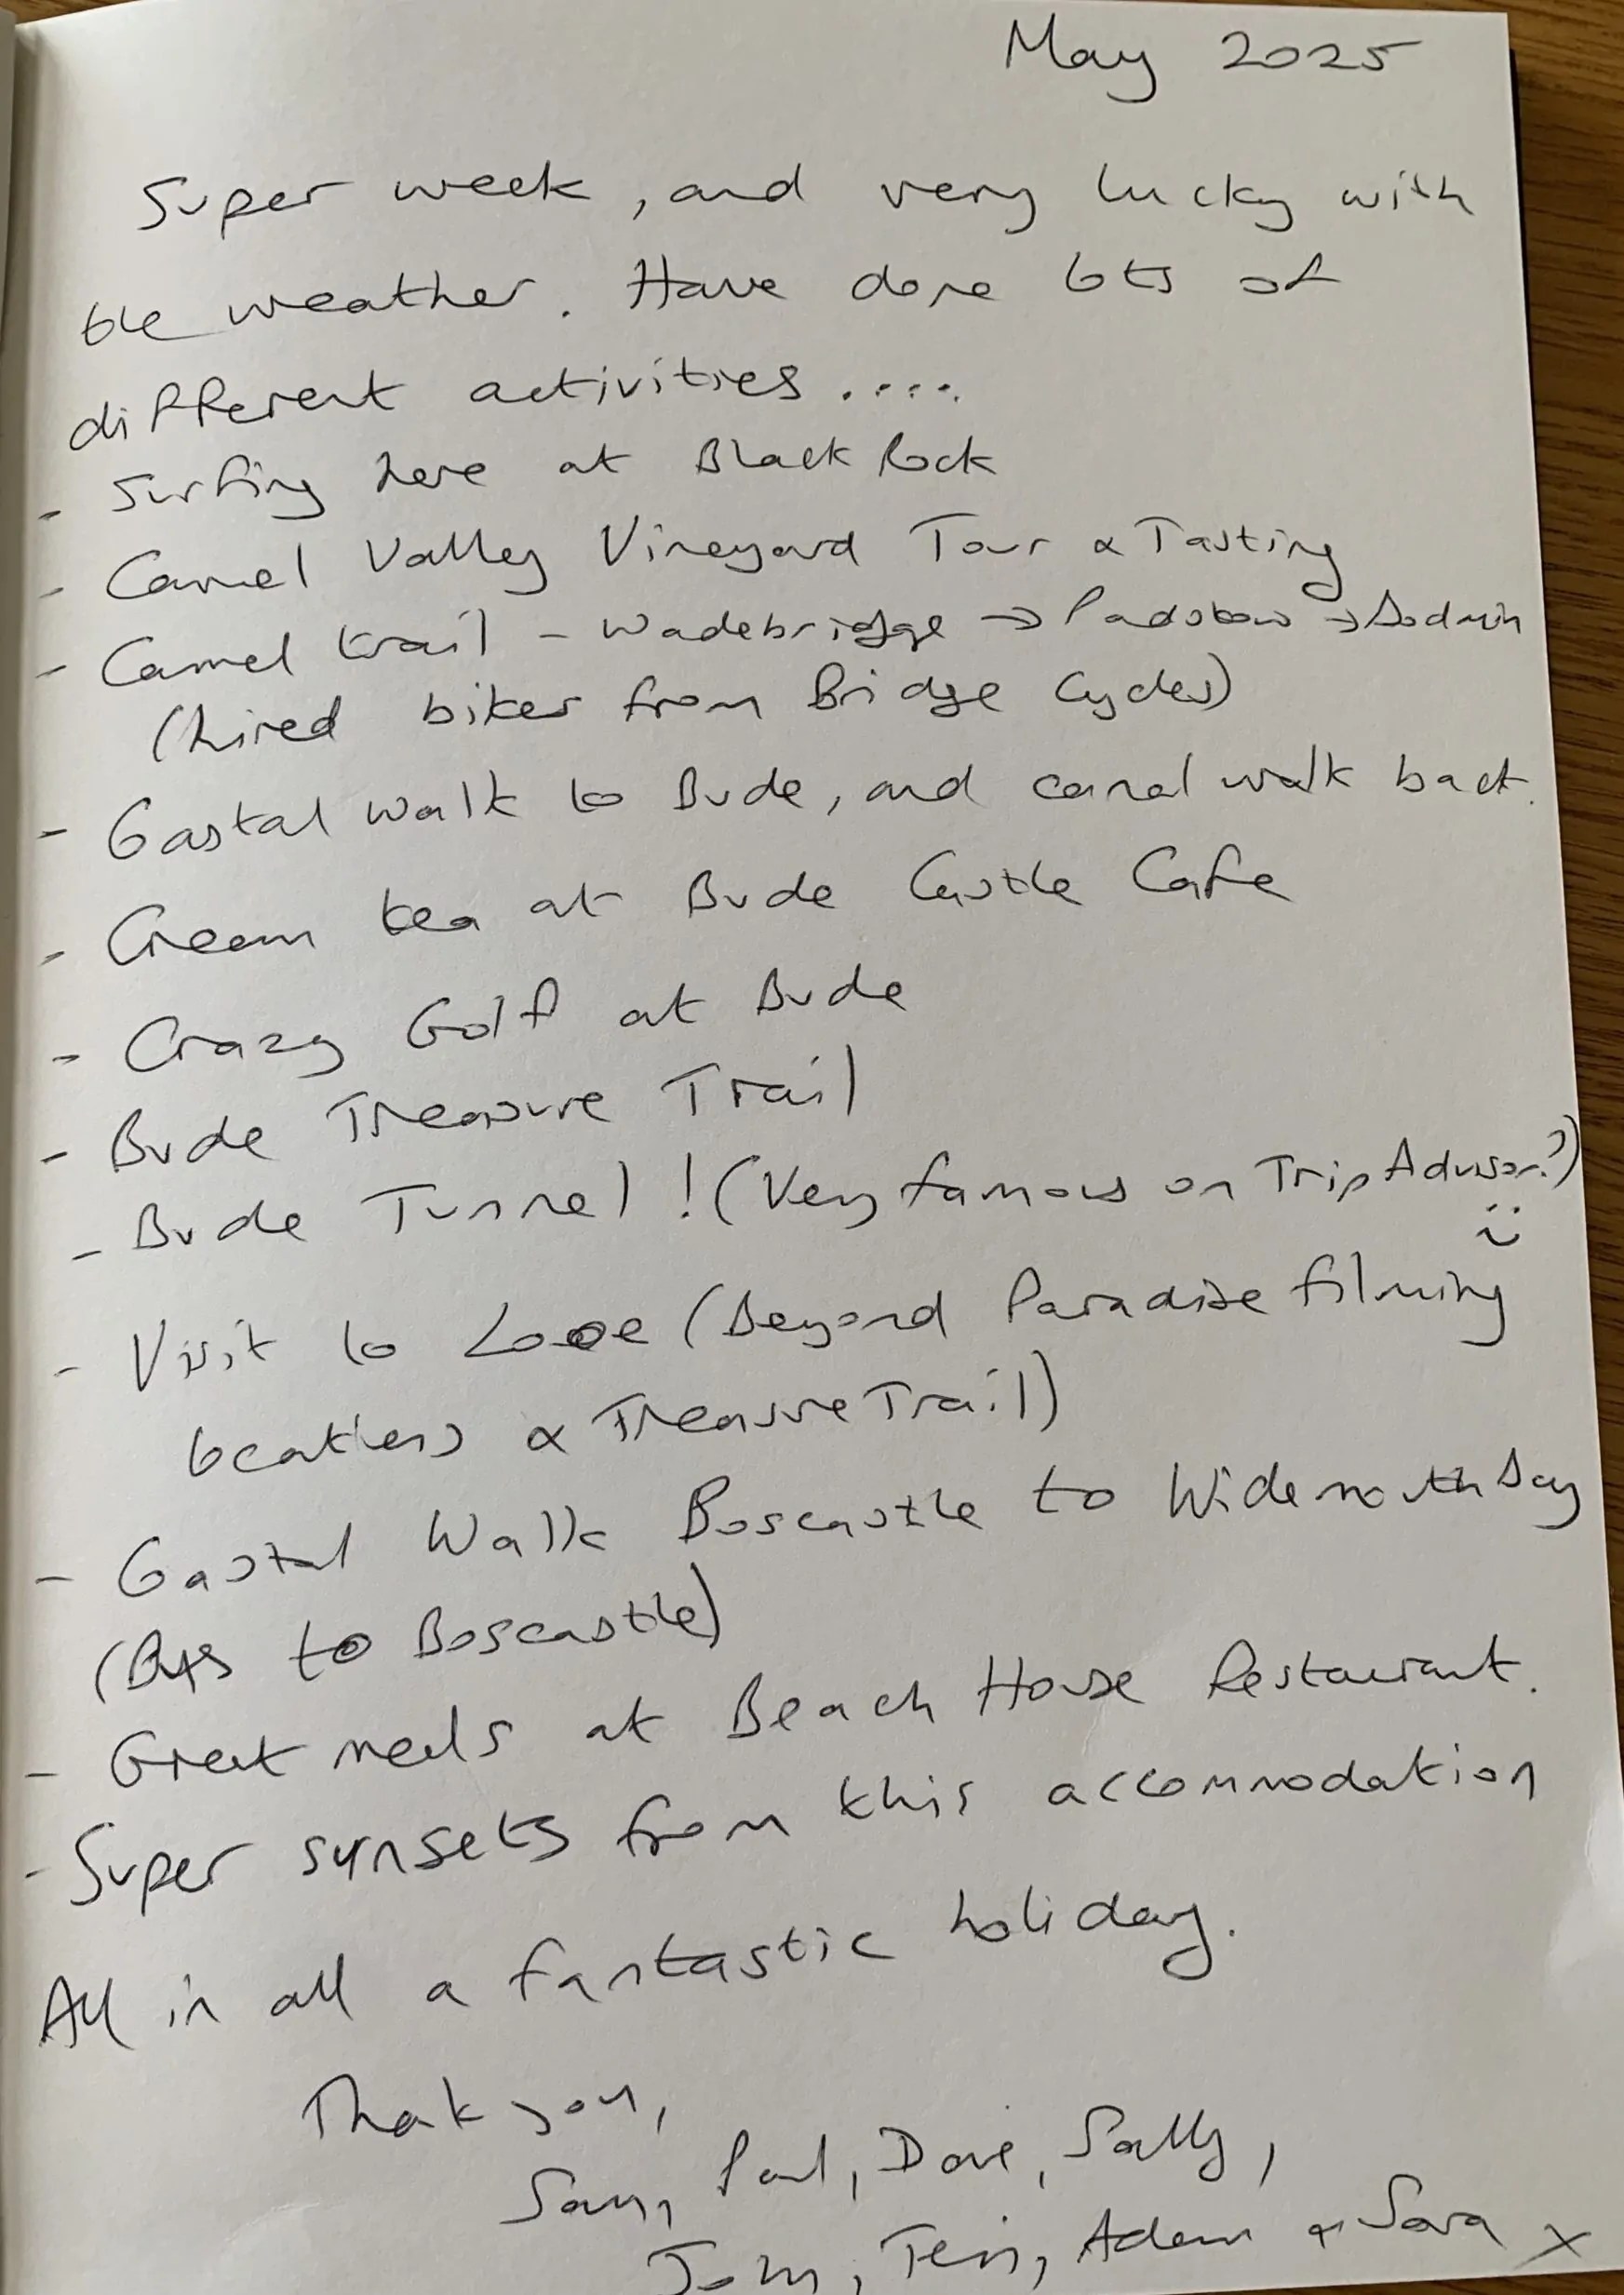 May 2025
Super week, and very lucky with
the weather. Have done lots of
different activities....
- Surfing here at Black Rock
- Camel Valley Vineyard Tour & Tasting
- Camel trail - Wadebridge → Padstow → Bodmin
(hired bikes from Bridge Cycles)
- Coastal walk to Bude, and canal walk back.
- Cream tea at Bude Castle Cafe
- Crazy Golf at Bude
- Bude Treasure Trail
- Bude Tunnel! (Very famous on TripAdvisor?)
- Visit to Looe (Beyond Paradise filming
locations & Treasure Trail)
- Coastal Walk Boscastle to Widemouth Bay
(Bus to Boscastle)
- Great meals at Beach House Restaurant.
- Super sunsets from this accommodation
All in all a fantastic holiday.
Thank you,
Sam, Paul, Dave, Sally,
Adam & Sara x